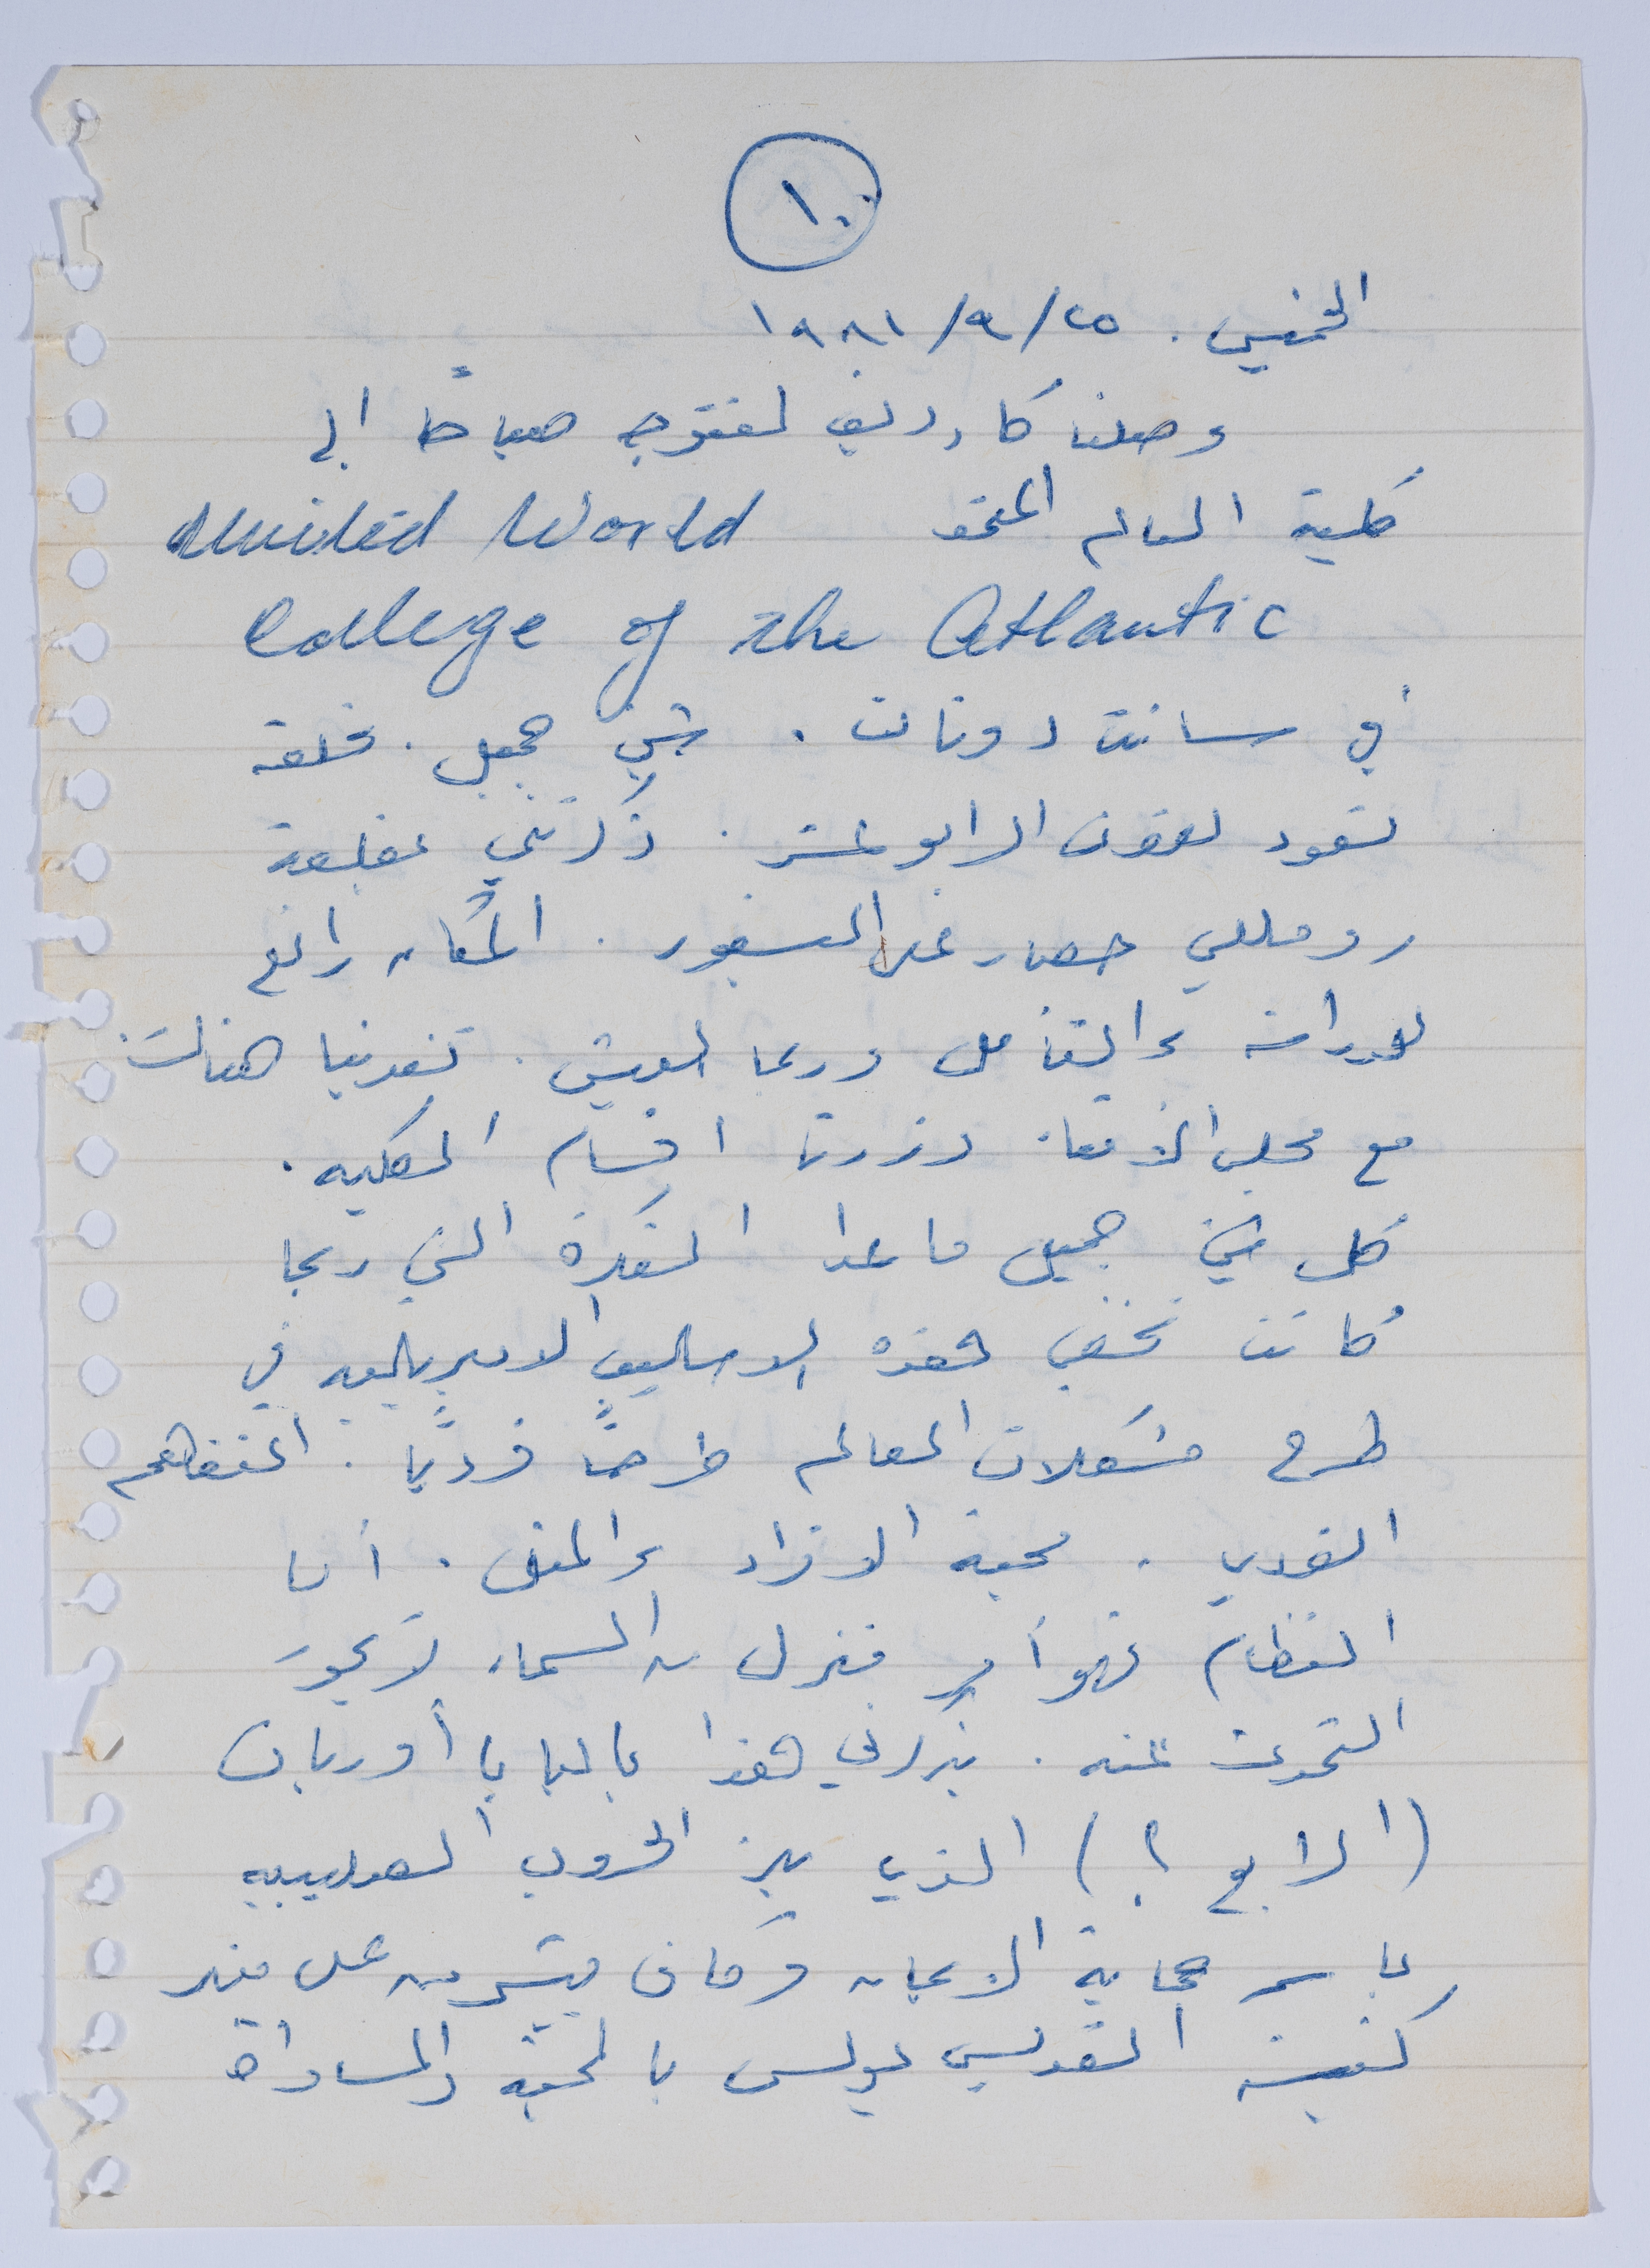 ١٠
الخميس. ٢٥/٩/١٩٨١
وصلنا كاردف لنتوجه صباحاً الى
كلية العالم المتحد United World
College of the Atlantic
في سانت دونات. شيء جميل. قلعة
تعود للقرن الرابع عشر. ذكرتني بقلعة
روميللي حصار على البسفور. المكان رائع
للدراسة والتأمل وربما للعيش. تغدينا هناك
مع مجلس الأمناء وزرنا اقسام الكلية.
كل شيء جميل ما عدا الفكرة التي ربما
كانت تخفي هذه الاساليب الامبريالية في
طرح مشكلات العالم طرحاً فردياً. التفاهم
الفردي. محبة الافراد والمثل. أما
النظام فهو أمر منزل من السماء لا يجوز
التحدث عنه. يذكرني هذا بالبابا أوربان
(الرابع ؟) الذي بارك الحروب الصليبية
باسم حماية الايمان وكان يبشر من على منبر
كنيسة القديس بولس بالمحبة والمساواة